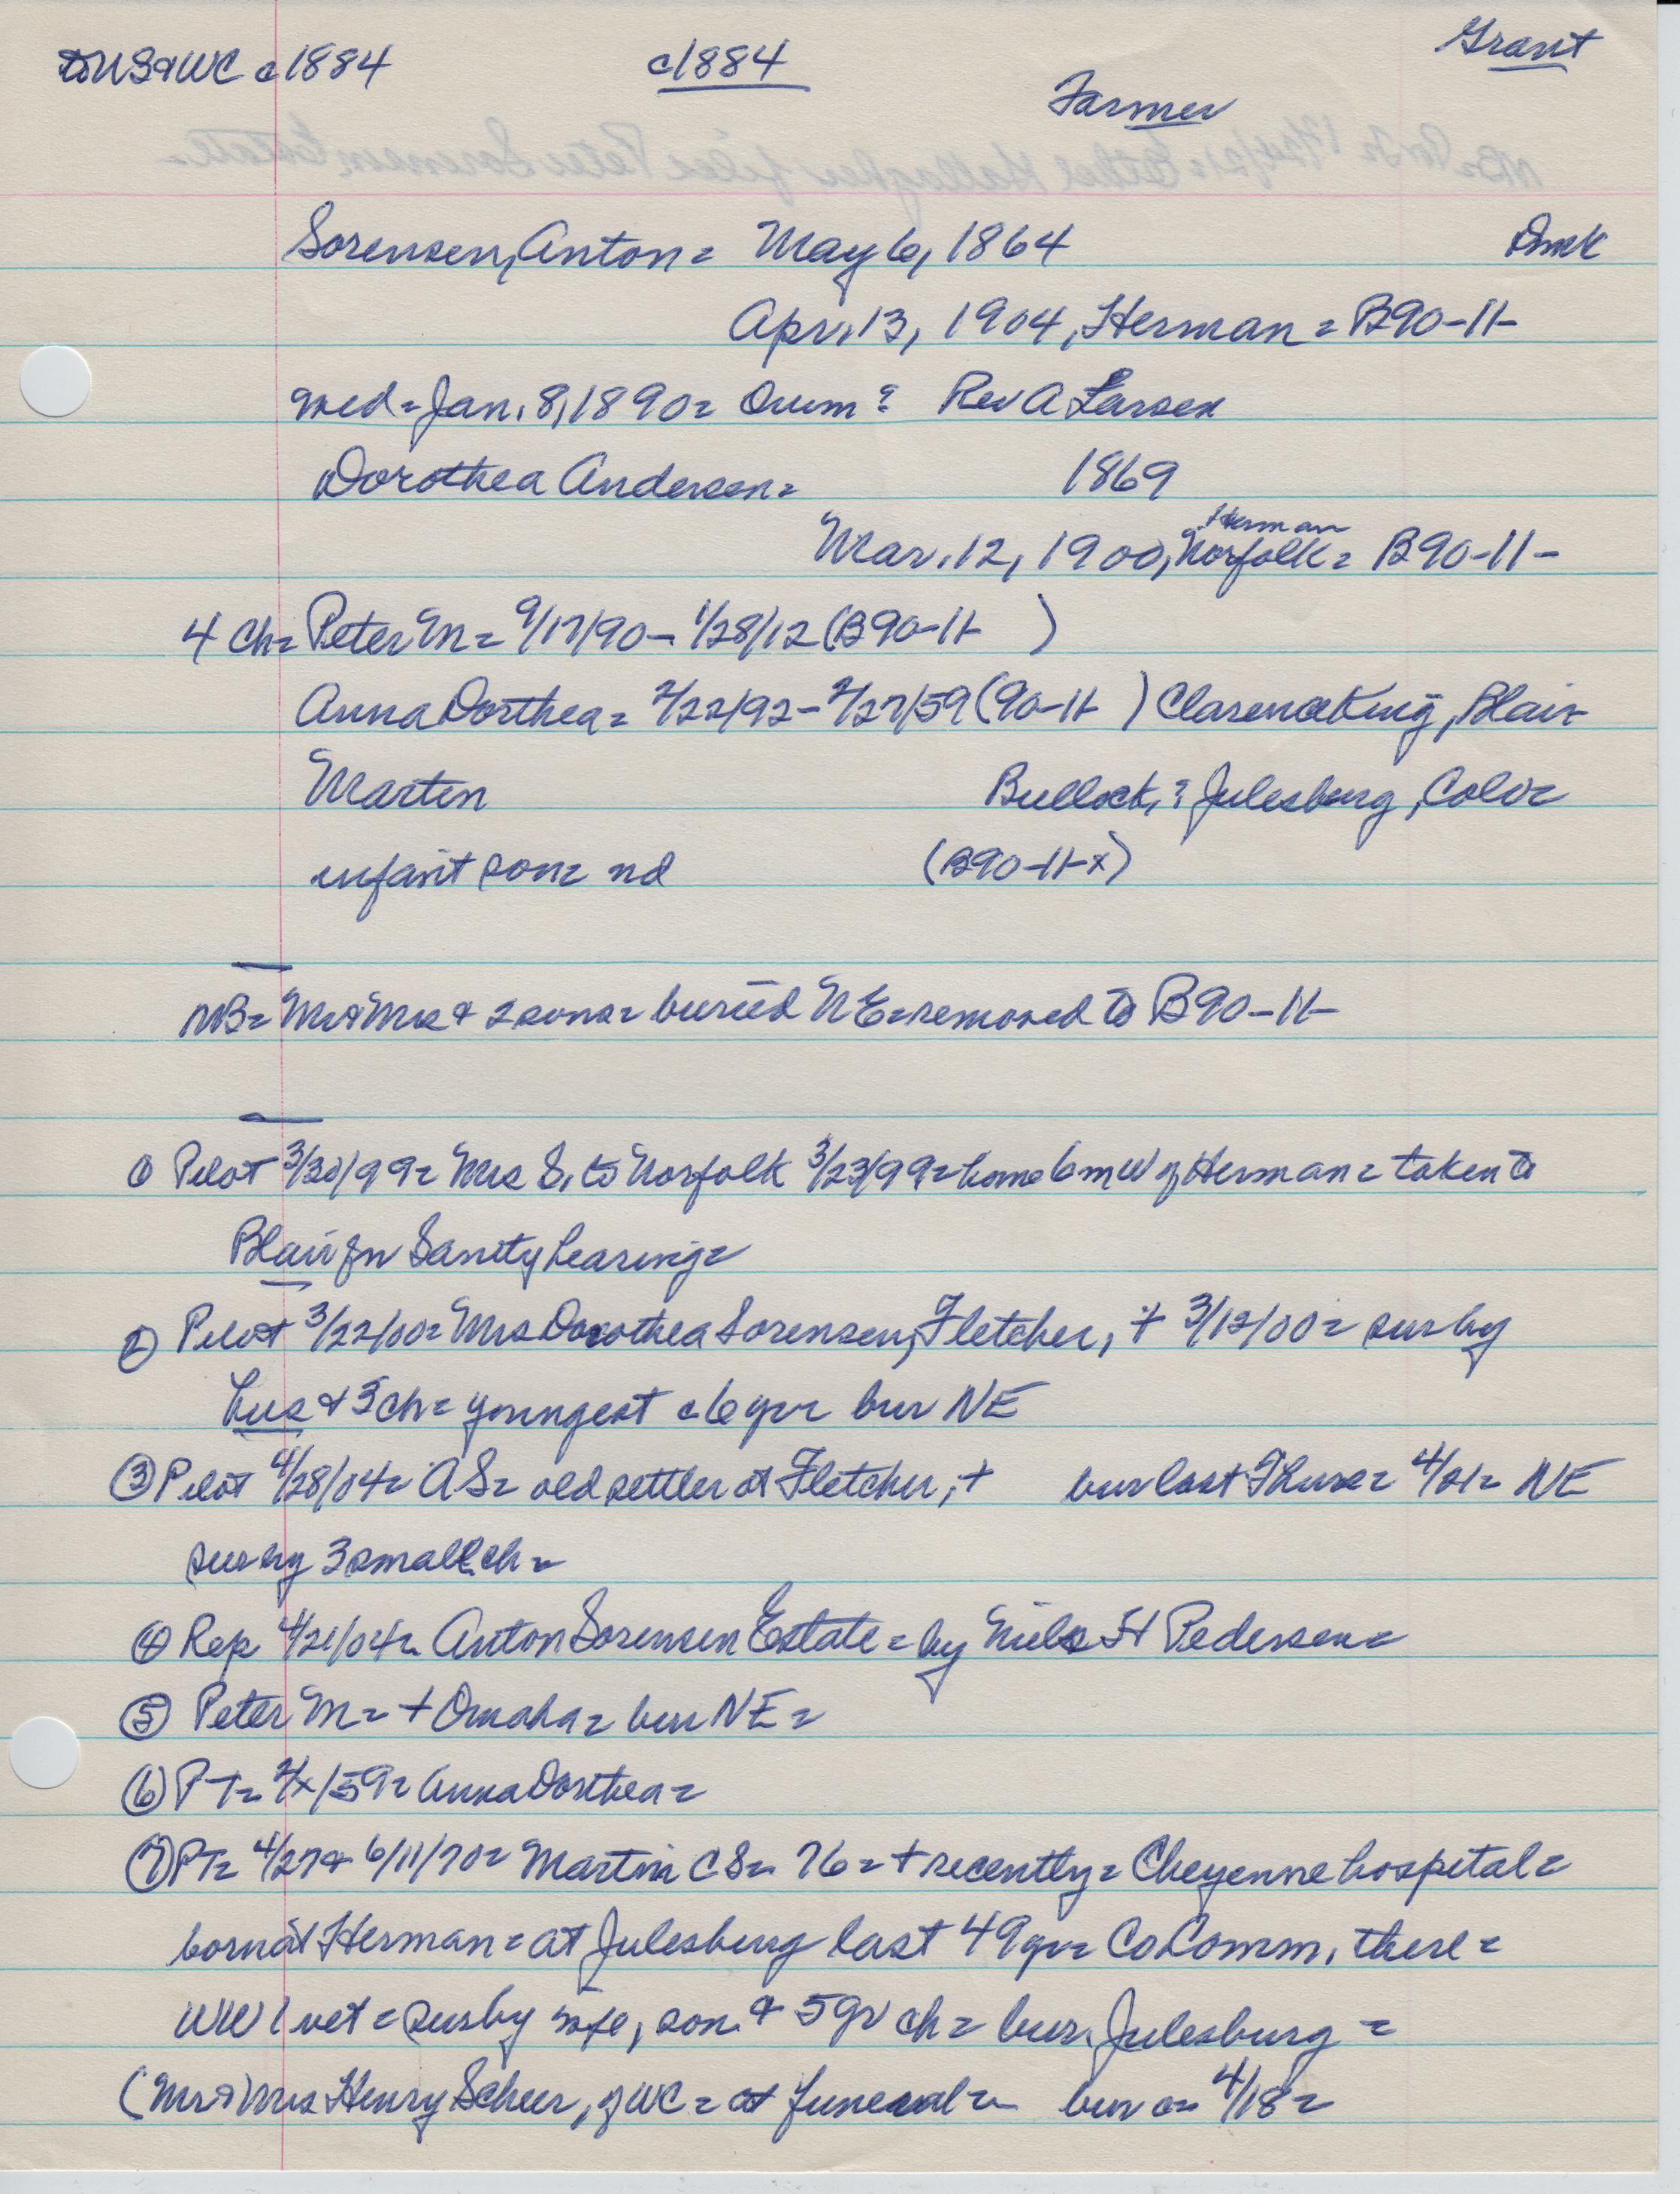 to US & WC c1884
c1884
Grant
Farmer
Sorensen, Anton = May 6, 1864 Dmk
Apr. 13, 1904, Herman = B90-11-
med = Jan. 8, 1890 = Orum? Rev A Larsen
Dorothea Andersen = 1869
Herman
Mar. 12, 1900, Norfolk = B90-11-
4 ch = Peter M = 9/17/90 - 1/28/12 (B90-11- )
Anna Dorthea = 2/22/92 - 2/27/59 (90-11- ) Clarence King, Blair
Martin Bullock, ? Julesburg, Colo =
infant son = nd (B90-11-x)
NB = Mr & Mrs & 2 sons = buried NE = removed to B90-11-
① Pilot 3/30/99 = Mrs S. to Norfolk 3/23/99 = home 6 m W of Herman = taken to
Blair for Sanity hearing =
② Pilot 3/22/00 = Mrs Dorothea Sorensen, Fletcher, + 3/12/00 = sur by
hus & 3 ch = youngest c 6 yr = bur NE
③ Pilot 4/28/04 = AS = old settler at Fletcher, + bur last Thurs = 4/21 = NE
sur by 3 small ch =
④ Rep 4/21/04 = Anton Sorensen Estate = by Niels H Pedersen =
⑤ Peter M = + Omaha = bur NE =
⑥ PT = 2/x/59 = Anna Dorthea =
⑦ PT = 4/27 & 6/11/70 = Martin C S = 76 = + recently = Cheyenne hospital =
born at Herman = at Julesburg last 49 yr = Co Comm. there =
WW 1 vet = sur by wife, son & 5 gr ch = bur. Julesburg =
(Mr & Mrs Henry Scheer, of WC = at funeral = bur on 4/18 =